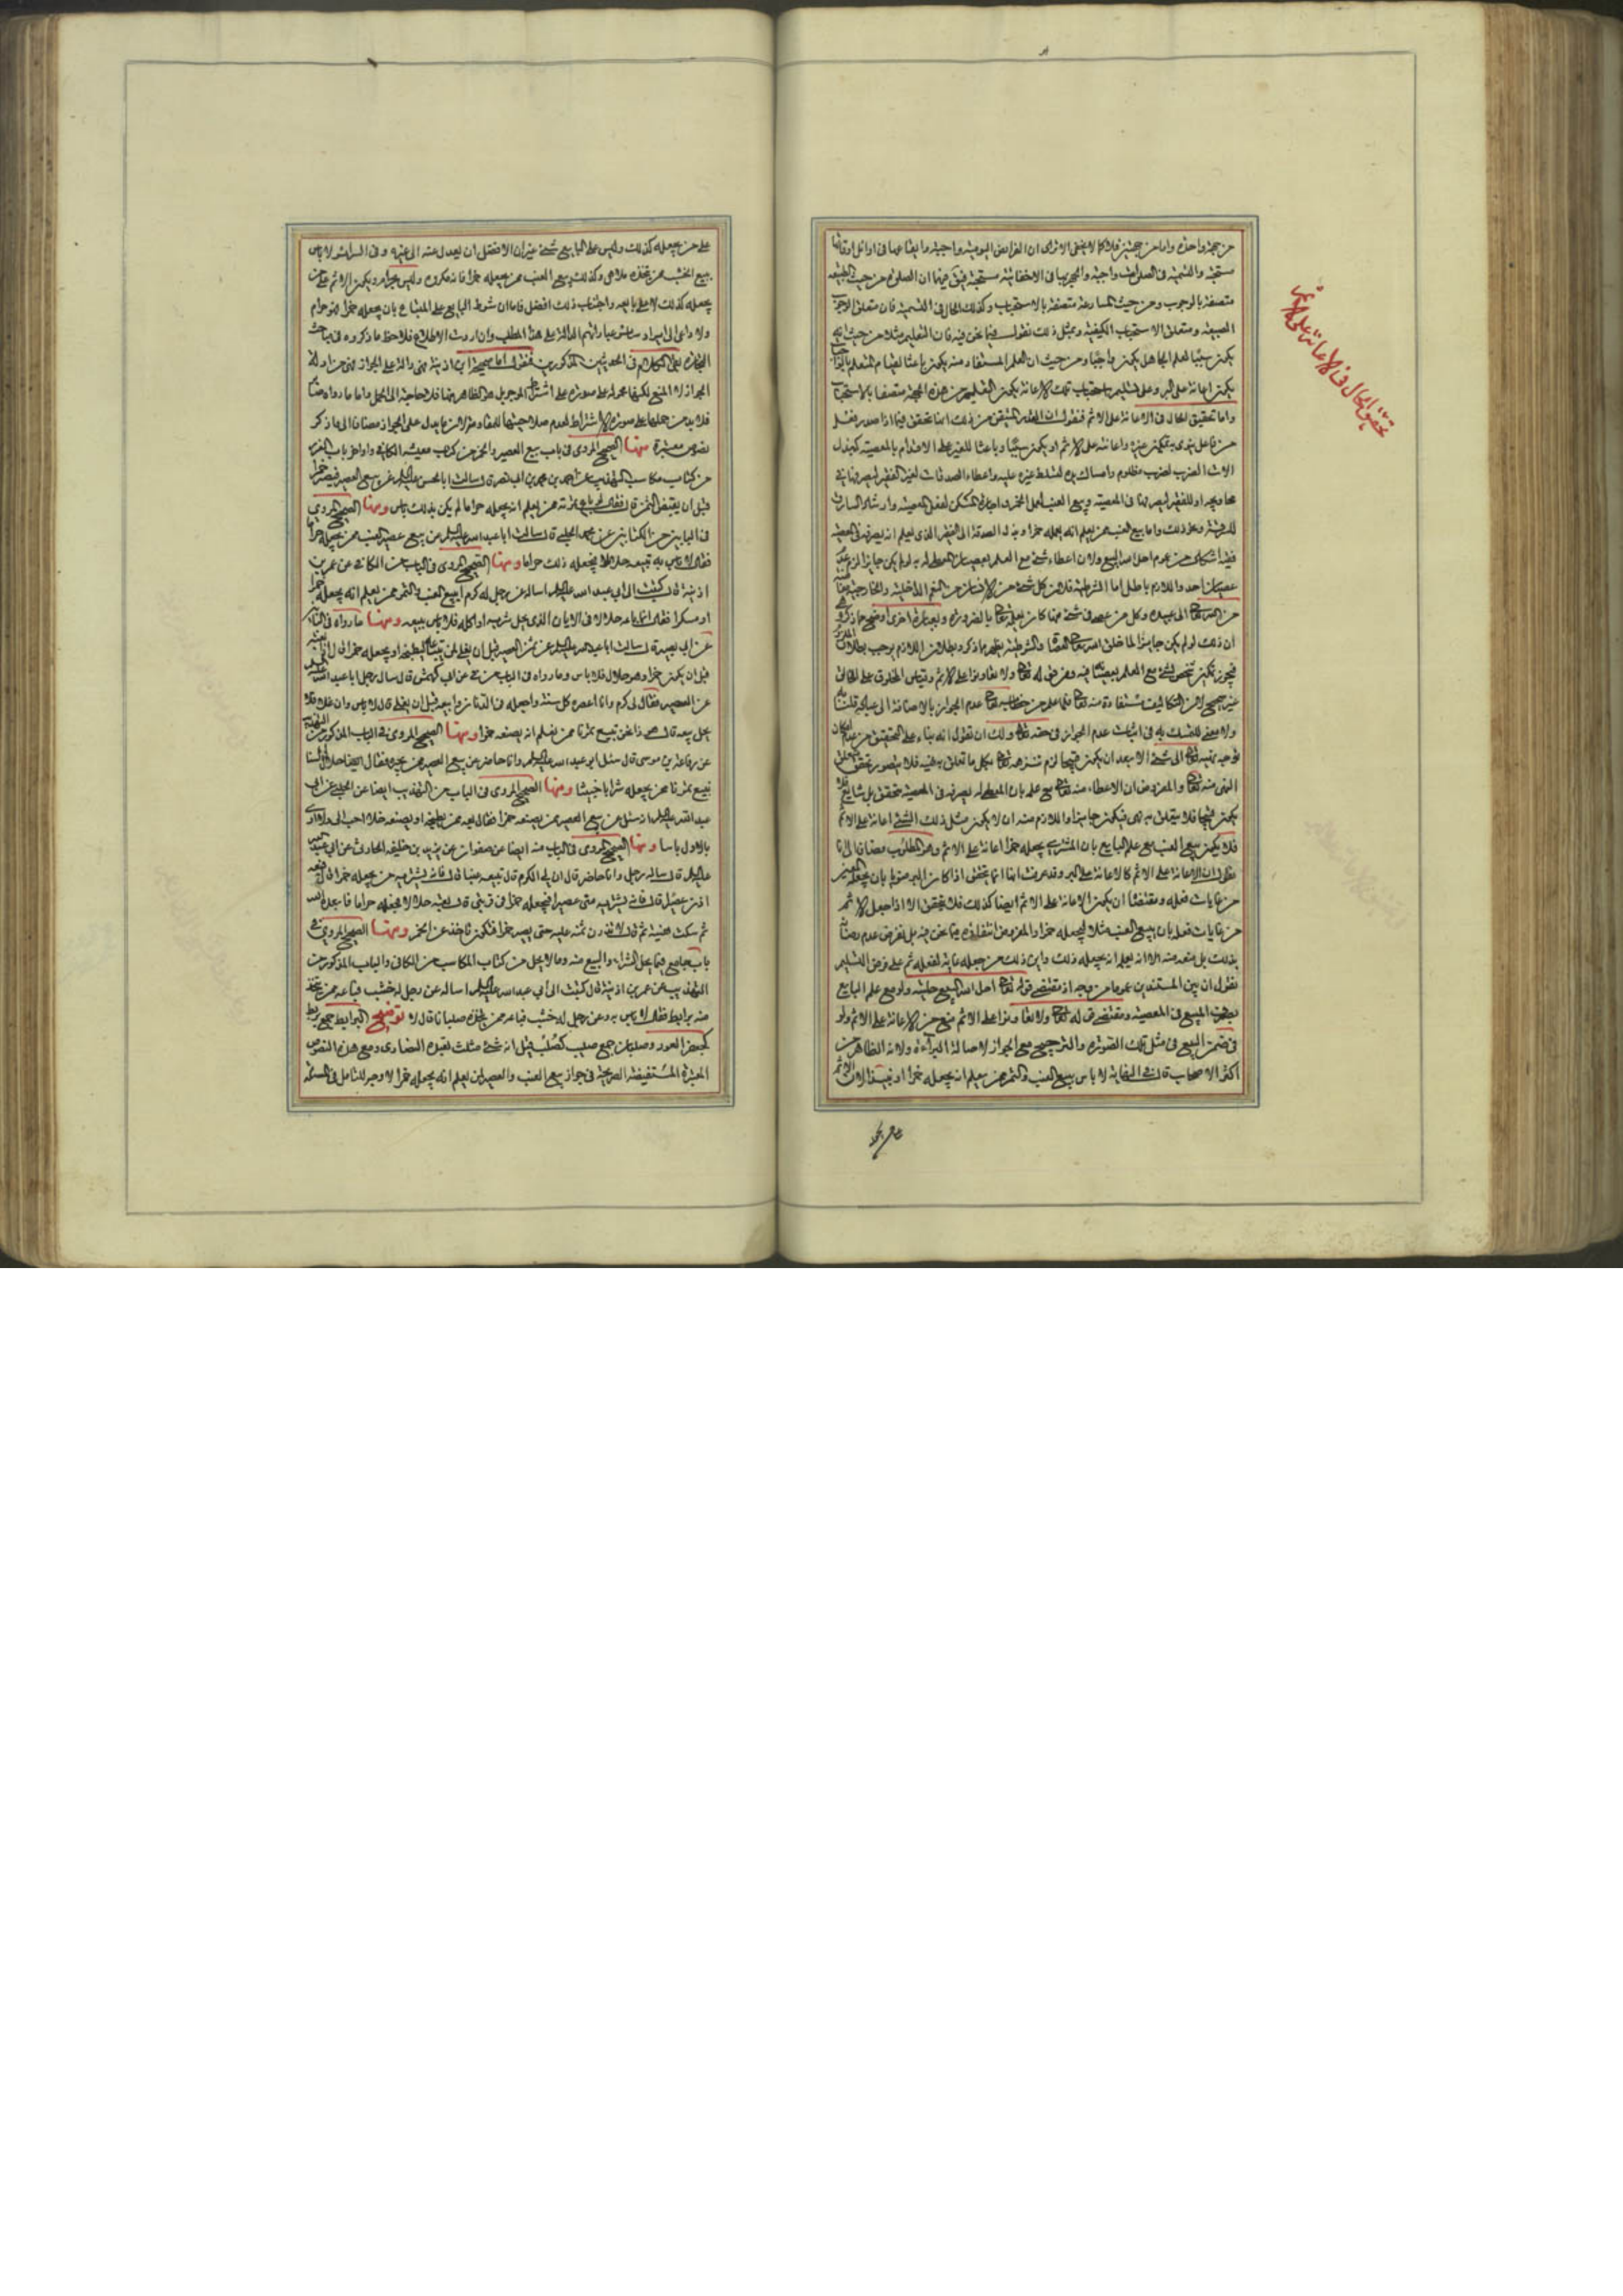 من جهة واحدة واما من جهتين فلا كما لا يخفى الا ترى ان الفرائض اليومية واجبة وايقاعها في اوائل اوقاتها
مستحبة والتسمية في الصلوات واجبة والجهر بها في الاخفاتية مستحبة فبقى فيهما ان الصلوة من حيث الطبيعة
متصفة بالوجوب ومن حيث المسارعة متصفة بالاستحباب وكذلك الحال في التسمية فان متعلق الوجوب
الطبيعة ومتعلق الاستحباب الكيفية وبمثل ذلك نقول فيما نحن فيه فان التعليم مثلا من حيث انه
يكون سببا لعلم الجاهل يكون واجبا ومن حيث ان العلم المستفاد منه يكون باعثا لقيام المتعلم بالواجبات
يكون اعانة على البر وعلى تسليم استحباب تلك الاعانة يكون التعليم من هذه الجهة متصفا بالاستحباب
واما تحقيق الحال في الاعانة على الاثم فنقول ان القدر المتيقن من ذلك انما يتحقق فيما اذا صدر فعل
من فاعل بقصد تمكين غيره واعانته على الاثم او يكون سببا وباعثا للغير على الاقدام بالمعصية كبذل
آلات الضرب لضرب مظلوم وامساك يده لتسلط غيره عليه واعطاء الصدقات لغير الفقير ليصرفها في
محاويجه او للفقير ليصرفها في المعصية وبيع العنب لعمل الخمر واجارة المسكن لفعل المعصية وارشاد السارق
للسرقة ونحو ذلك واما بيع العنب ممن يعلم انه يعمله خمرا وبذل الصدقة الى الفقير الذي يعلم انه يصرفه في المعصية
ففيه اشكال من عموم احل الله البيع ولان اعطاء شيء مع العلم بعصيان المعطى له به لو لم يكن جايزا لزم عدم
عصيان احد واللازم باطل اما الشرطية فلان كل شيء من الانسان من النعم الداخلية والخارجية معطاة
من الله تعالى الى عبيده وكل من عصى في شيء منها كان بعلمه تعالى بالضرورة وبعبارة اخرى اوضح مما ذكروا
ان ذلك لو لم يكن جايزا لما خلق الله تعالى العصاة والشرطية يظهر مما ذكر وبطلان اللازم يوجب بطلان الملزوم
فيجوز تمكين شخص لشيء مع العلم بعصيانه فيه وهو في قوله تعالى ولا تعاونوا على الاثم وقياس المخلوق على الخالق
غير صحيح لان التكاليف مستفادة منه تعالى فما علم من خطابه تعالى عدم الجواز بالاضافة الى عباده قلنا به
ولا معنى للتمسك به في اثبات عدم الجواز في حقه تعالى ولك ان تقول انه بناء على التحقيق من عدم امكان
توجيه قبيح تعالى الى شيء الا بعد ان يكون قبيحا لزم تنزهه تعالى بكل ما تعلق به نهيه فلا يتصور تحقق متعلق
النهي منه تعالى والمفروض ان الاعطاء منه تعالى مع علمه بان المعطى له يصرفه في المعصية متحقق بل شايع فلا
يكون قبيحا فلا يتعلق به نهي فيكون جايزا واللازم منه ان لا يكون مثل ذلك الشيء اعانة على الاثم
فلا يكون بيع العنب مع علم البايع بان المشتري يجعله خمرا اعانة على الاثم وهو المطلوب مضافا الى انا
نقول ان الاعانة على الاثم كالاعانة على البر وقد عرفت انها انما يتحقق اذا كان البر منويا بان يجعله المعين
من غايات فعله ومقتضاه ان يكون الاعانة على الاثم ايضا كذلك فلا يتحقق الا اذا جعل الاثم
من غايات فعله بان يبيع العنب مثلا ليجعله خمرا والمفروض انتفاؤه فيما نحن فيه بل نفرض عدم رضائه
بذلك بل يمنعه منه الا انه يعلم انه يجعله ذلك واين ذلك من جعله غاية لفعله ثم على فرض التسليم
نقول ان بين المستندين عموما من وجه اذ مقتضى قوله تعالى احل الله البيع حليته ولو مع علم البايع
بصرف المبيع في المعصية ومقتضى قوله تعالى ولا تعاونوا على الاثم منع من الاعانة على الاثم ولو
في ضمن البيع في مثل تلك الصورة والترجيح مع الجواز لاصالة البراءة ولانه الظاهر من
اكثر الاصحاب قال في النهاية لا باس ببيع العنب والتمر ممن يعلم انه يجعله خمرا او نبيذا لان الاثم
تحقيق الحال في الاعانة على الاثم
على من يجعله كذلك وليس على البايع شيء غير ان الافضل ان يعدل عنه الى غيره وفي السرائر لا باس
ببيع الخشب ممن يتخذه ملاهي وكذلك بيع العنب ممن يجعله خمرا فانه مكروه وليس بحرام ويكون الاثم على من
يجعله كذلك لا على بايعه واجتناب ذلك افضل فاما ان شرط البايع على المبتاع بان يجعله خمرا فهو حرام
ولا داعي الى ايراد ساير عباراتهم الدالة على هذا المطلب وان اردت الاطلاع فلاحظ ما ذكروه في مباحث
التجارة بقى الكلام في الحديثين المذكورين فنقول اما صحيحة ابن اذينة فهي دالة على الجواز فهي من ادلة
الجواز لا المنع لكنها محمولة على صورة على اشتراط الموجر بل هو الظاهر منها فلا حاجة الى الحمل واما ما رواه صابر
فلا بد من حملها على صورة الاشتراط لعدم صلاحيتها للمقاومة لان ما يدل على الجواز مضافا الى ما ذكر
نصوص معتبرة منها الصحيح المروي في باب بيع العصير والخمر من كتاب معيشة الكافي واواخر باب الغرر
من كتاب مكاسب التهذيب عن احمد بن محمد بن ابي نصر قال سالت ابا الحسن عليه السلام عن بيع العصير فيصير خمرا
قبل ان يقبض الثمن قال فقال لو باع ثمرته ممن يعلم انه يجعله حراما لم يكن بذلك باس ومنها الصحيح المروي
في البابين من الكتابين عن محمد الحلبي قال سالت ابا عبد الله عليه السلام عن بيع عصير العنب ممن يجعله حراما
فقال لا باس به تبيعه حلالا فيجعله ذلك حراما ومنها الصحيح المروي في الباب من الكافي عن عمر بن
اذينة قال كتبت الى ابي عبد الله عليه السلام اساله عن رجل له كرم ايبيع العنب والتمر ممن يعلم انه يجعله خمرا
او مسكرا فقال انما باعه حلالا في الابان الذي يحل شربه او اكله فلا باس ببيعه ومنها ما رواه في الباب
عن ابي بصير قال سالت ابا عبد الله عليه السلام عن ثمن العصير قبل ان يغلي لمن يبتاعه ليطبخه او يجعله خمرا قال اذا بعته
قبل ان يكون خمرا وهو حلال فلا باس وما رواه في الباب عن ابي كهمس قال سال رجل ابا عبد الله عليه السلام
عن العصير فقال لي كرم وانا اعصره كل سنة واجعله في الدنان وابيعه قبل ان يغلي قال لا باس وان غلا فلا
يحل بيعه ثم قال هو ذا نحن نبيع تمرنا ممن نعلم انه يصنعه خمرا ومنها الصحيح المروي في الباب المذكور من التهذيب
عن رفاعة بن موسى قال سئل ابو عبد الله عليه السلام وانا حاضر عن بيع العصير ممن يخمره فقال حلال السنا
نبيع تمرنا ممن يجعله شرابا خبيثا ومنها الصحيح المروي في الباب من التهذيب ايضا عن الحلبي عن ابي
عبد الله عليه السلام انه سئل عن بيع العصير ممن يصنعه خمرا فقال بعه ممن يطبخه او يصنعه خلا احب الي ولا ارى
بالاول باسا ومنها الصحيح المروي في الباب منه ايضا عن صفوان عن يزيد بن خليفة الحارثي عن ابي عبد الله
عليه السلام قال ساله رجل وانا حاضر قال ان لي الكرم قال تبيعه عنبا قال فانه يشتريه من يجعله خمرا قال فبعه
اذن عصيرا قال فانه يشتريه مني عصيرا فيجعله خمرا في قربتي قال بعته حلالا فجعله حراما فابعده الله
ثم سكت هنيئة ثم قال لا تذرن ثمنه عليه حتى يصير خمرا فتكون تاخذ ثمن الخمر ومنها الصحيح المروي في
باب جامع فيما يحل الشراء والبيع منه وما لا يحل من كتاب المكاسب من الكافي والباب المذكور من
التهذيب عن عمر بن اذينة قال كتبت الى ابي عبد الله عليه السلام اساله عن رجل له خشب فباعه ممن يتخذ
منه برابط فقال لا باس به وعن رجل له خشب فباعه ممن يتخذه صلبانا قال لا توضيح البرابط جمع بربط
كجعفر العود وصلبان جمع صليب كصلب قيل انه شيء مثلث تعبده النصارى ومع هذه النصوص
المعتبرة المستفيضة الصريحة في جواز بيع العنب والعصير لمن يعلم انه يجعله خمرا لا وجه للتامل في المسئلة
على من يجعله